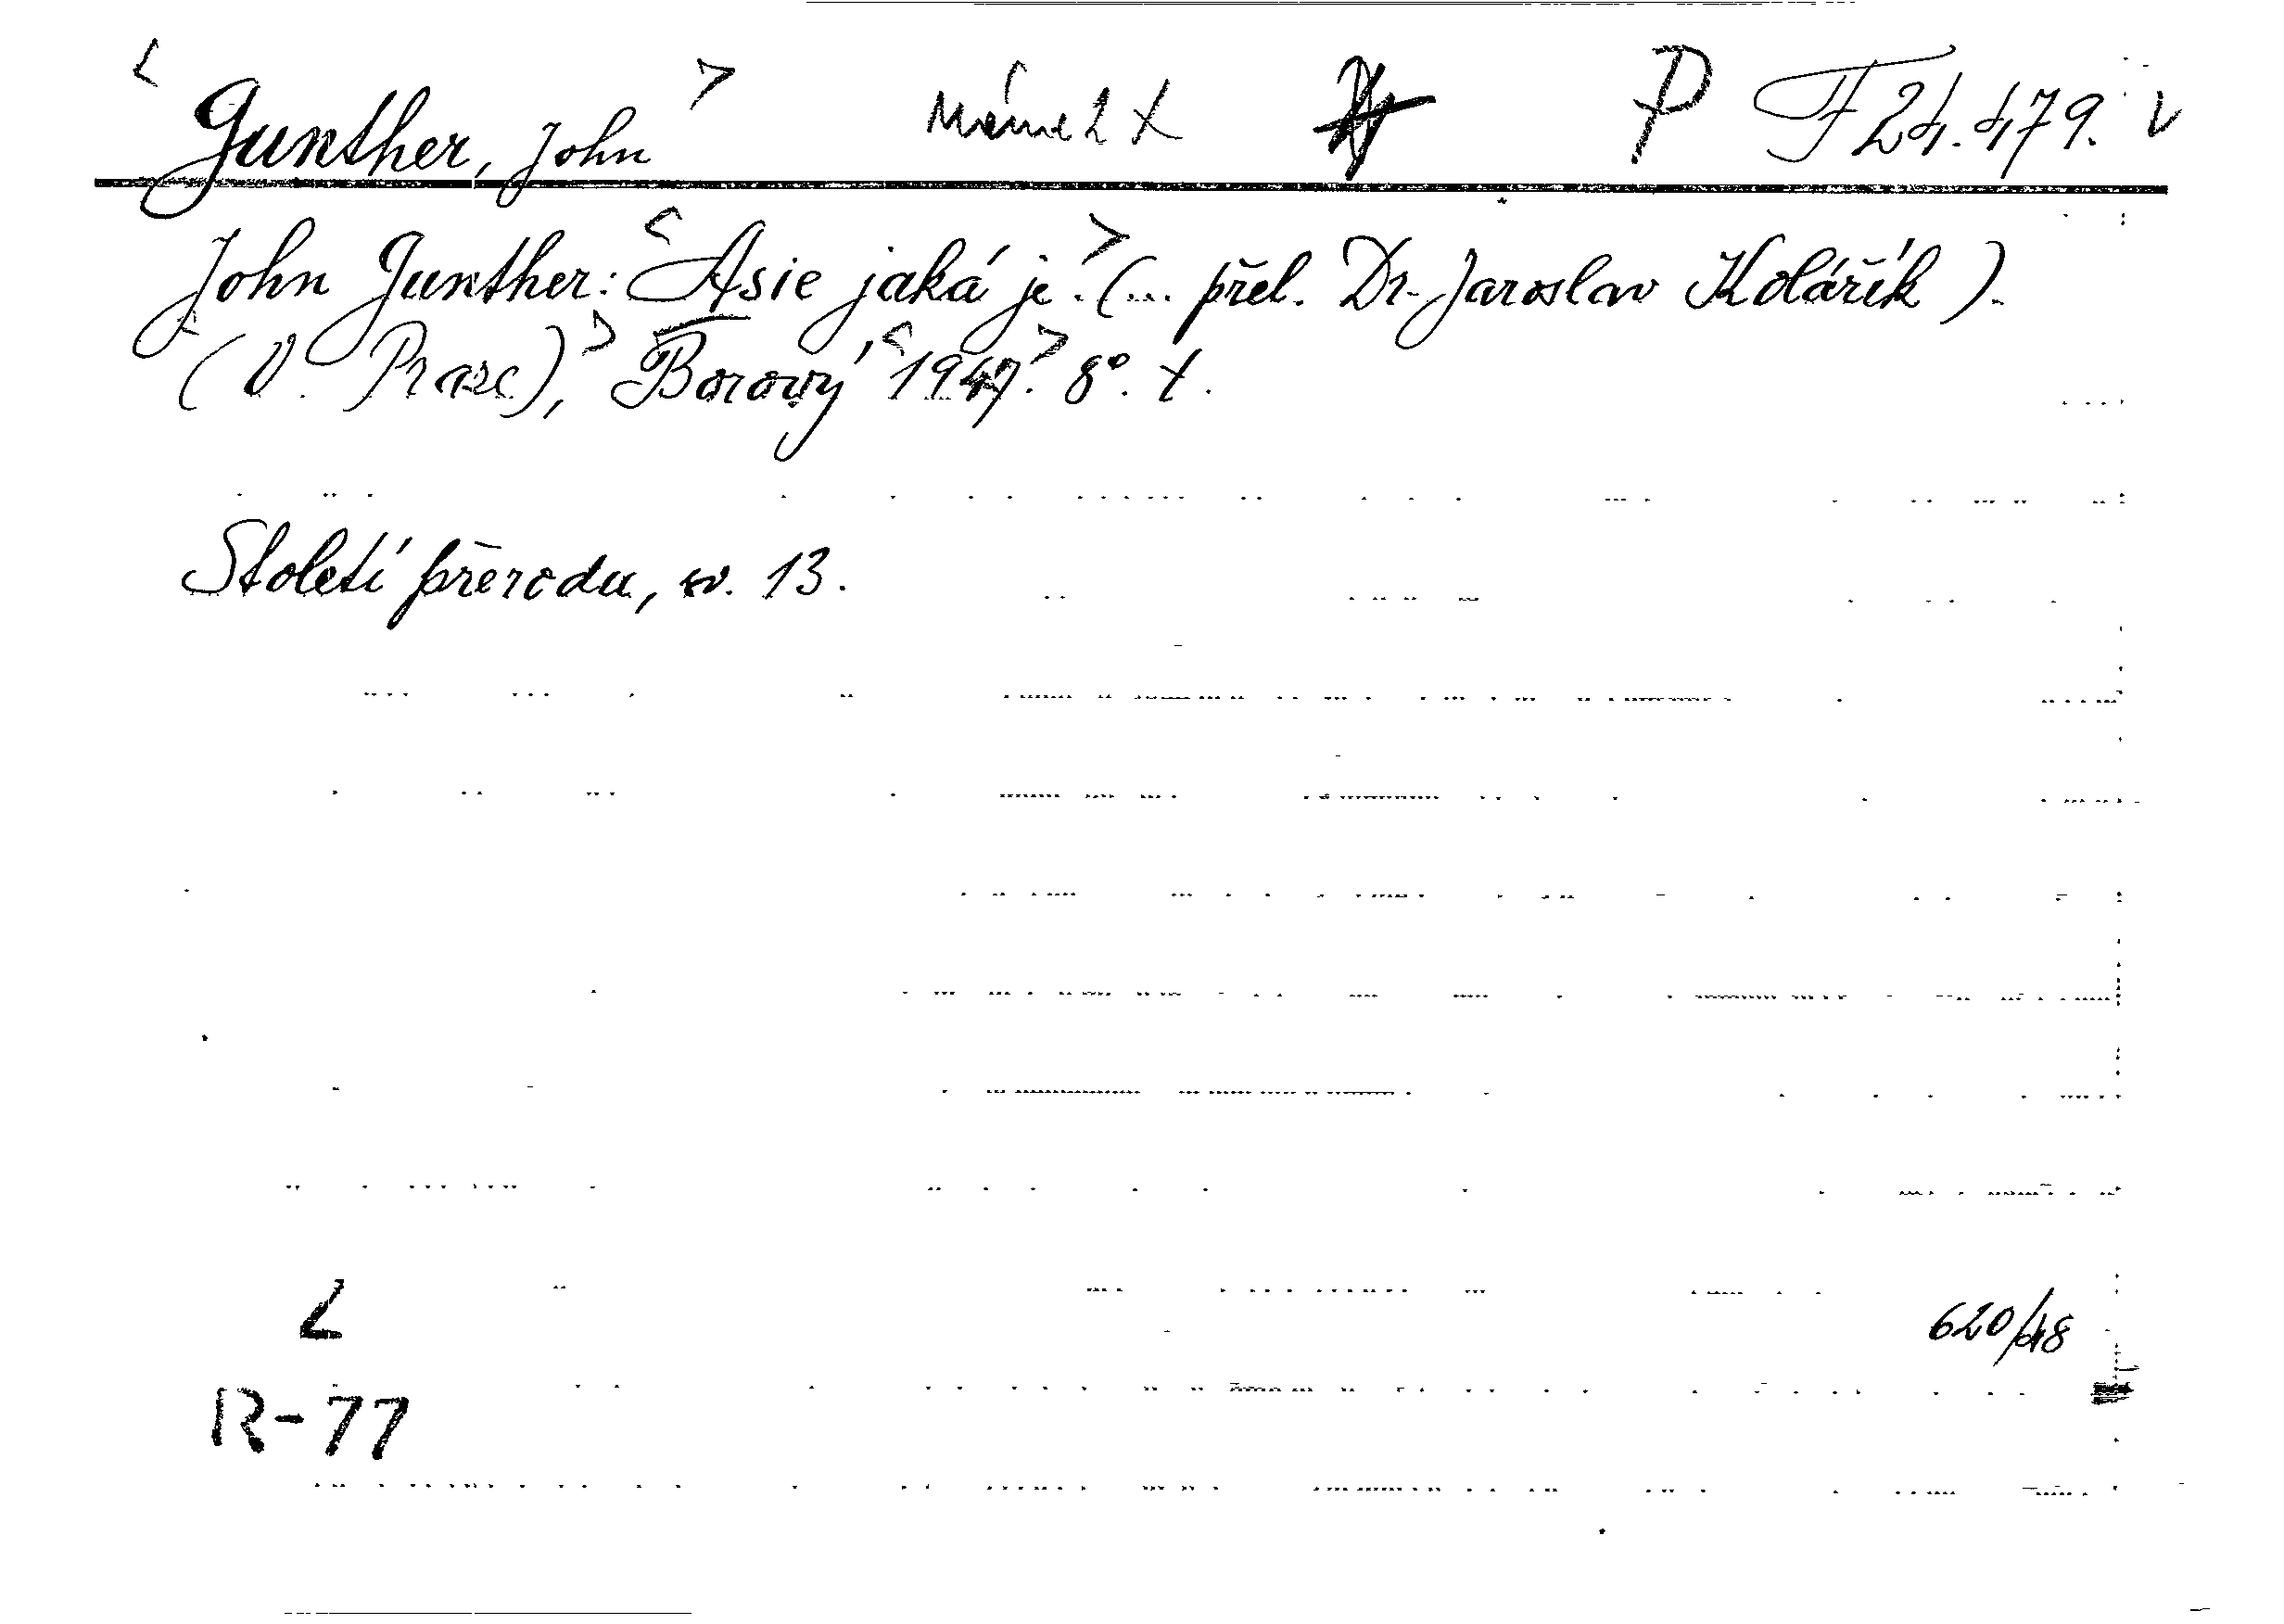 <Gunther, John> Máme 2 x P F 24.479. v
John Gunther: <Asie jaká je.> (... přel. Dr. Jaroslav Kolářík).
<(V Praze),> Borový, <1947.> 8°. t.
Století přerodu, sv. 13.
2 620/48
R-77